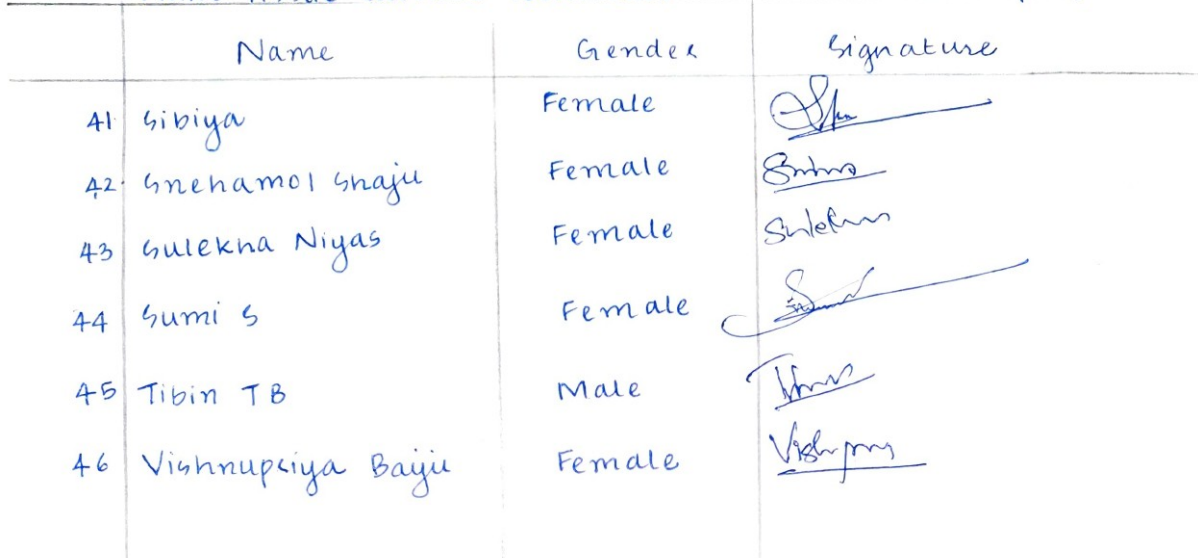 Name Gender Signature
41 Sibiya Female
42. Snehamol Shaju Female
43 Sulekha Niyas Female Sulekha
44 Sumi S Female
45 Tibin TB Male
46 Vishnupriya Baiju Female